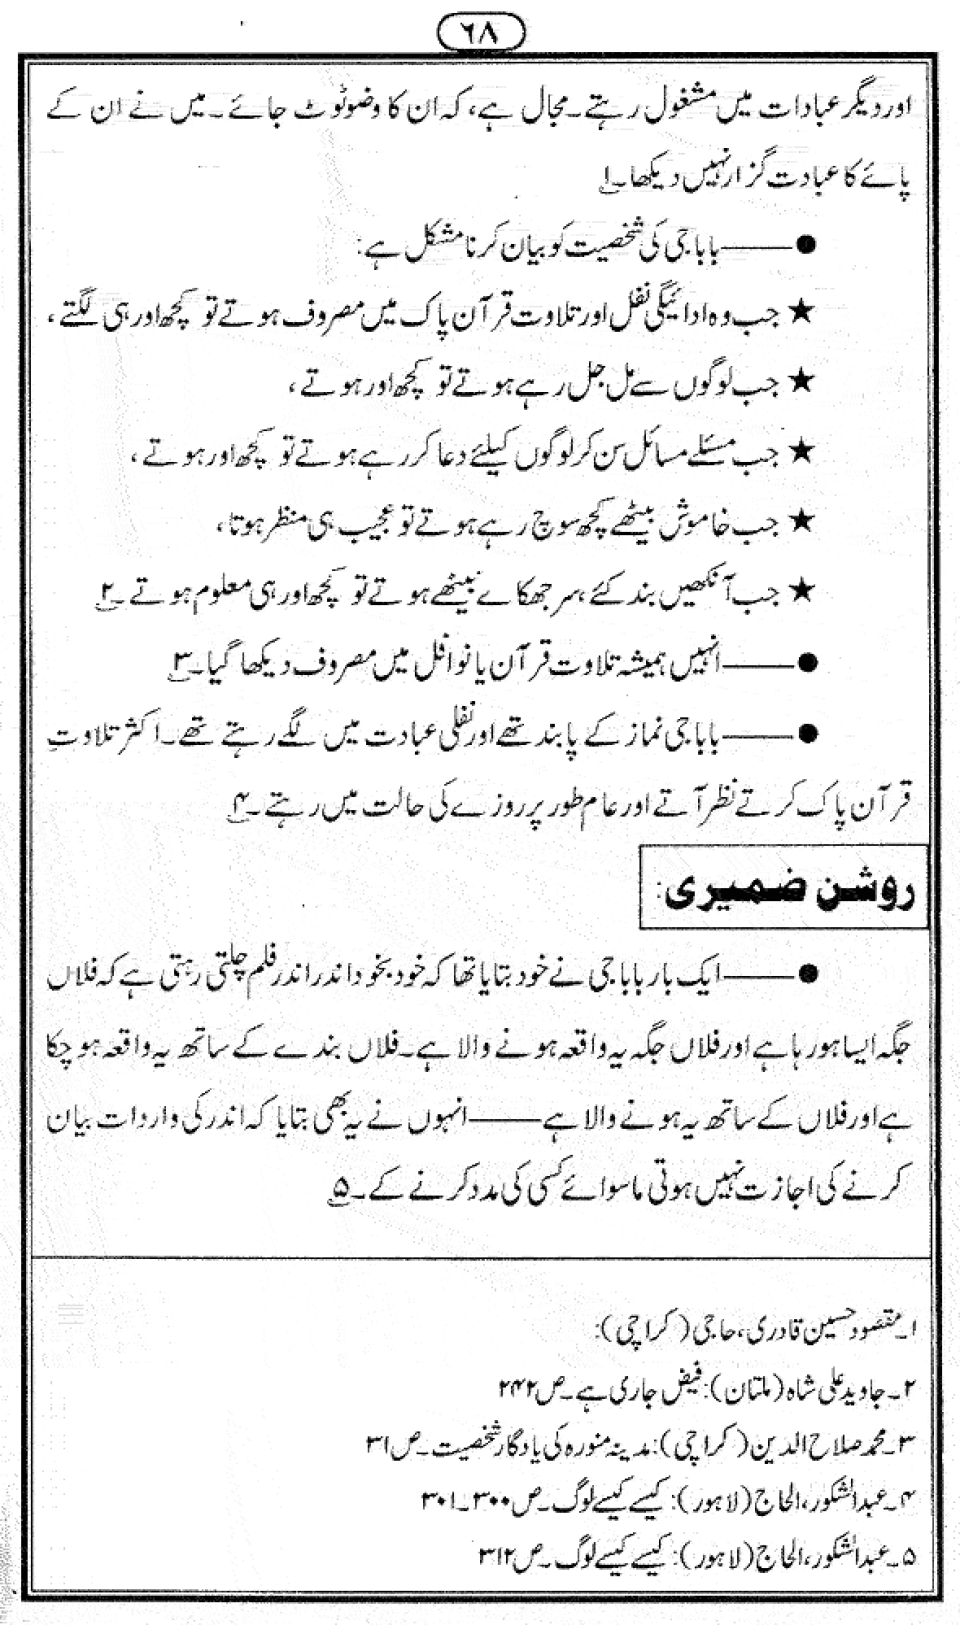 ٦٨
اور دیگر عبادات میں مشغول رہتے۔ مجال ہے، کہ ان کا وضو ٹوٹ جائے۔ میں نے ان کے
پائے کا عبادت گزار نہیں دیکھا۔۱
●——— باباجی کی شخصیت کو بیان کرنا مشکل ہے:
★ جب وہ ادائیگی نفل اور تلاوت قرآن پاک میں مصروف ہوتے تو کچھ اور ہی لگتے،
★ جب لوگوں سے مل جل رہے ہوتے تو کچھ اور ہوتے،
★ جب مسئلے مسائل سن کر لوگوں کیلئے دعا کر رہے ہوتے تو کچھ اور ہوتے،
★ جب خاموش بیٹھے کچھ سوچ رہے ہوتے تو عجیب ہی منظر ہوتا،
★ جب آنکھیں بند کئے، سر جھکاے بیٹھے ہوتے تو کچھ اور ہی معلوم ہوتے۔۲
●——— انہیں ہمیشہ تلاوت قرآن یا نوافل میں مصروف دیکھا گیا۔۳
●——— باباجی نماز کے پابند تھے اور نفلی عبادت میں لگے رہتے تھے۔ اکثر تلاوتِ
قرآن پاک کرتے نظر آتے اور عام طور پر روزے کی حالت میں رہتے۔۴
روشن ضمیری:
●——— ایک بار باباجی نے خود بتایا تھا کہ خود بخود اندر اندر فلم چلتی رہتی ہے کہ فلاں
جگہ ایسا ہو رہا ہے اور فلاں جگہ یہ واقعہ ہونے والا ہے۔ فلاں بندے کے ساتھ یہ واقعہ ہو چکا
ہے اور فلاں کے ساتھ یہ ہونے والا ہے ——— انہوں نے یہ بھی بتایا کہ اندر کی واردات بیان
کرنے کی اجازت نہیں ہوتی ماسوائے کسی کی مدد کرنے کے۔۵
۱۔ مقصود حسین قادری، حاجی (کراچی):
۲۔ جاوید علی شاہ (ملتان): فیض جاری ہے۔ ص ۲۴۲
۳۔ محمد صلاح الدین (کراچی): مدینہ منورہ کی یادگار شخصیت۔ ص ۳۱
۴۔ عبدالشکور، الحاج (لاہور): کیسے کیسے لوگ۔ ص ۳۰۰۔۳۰۱
۵۔ عبدالشکور، الحاج (لاہور): کیسے کیسے لوگ۔ ص ۳۱۲